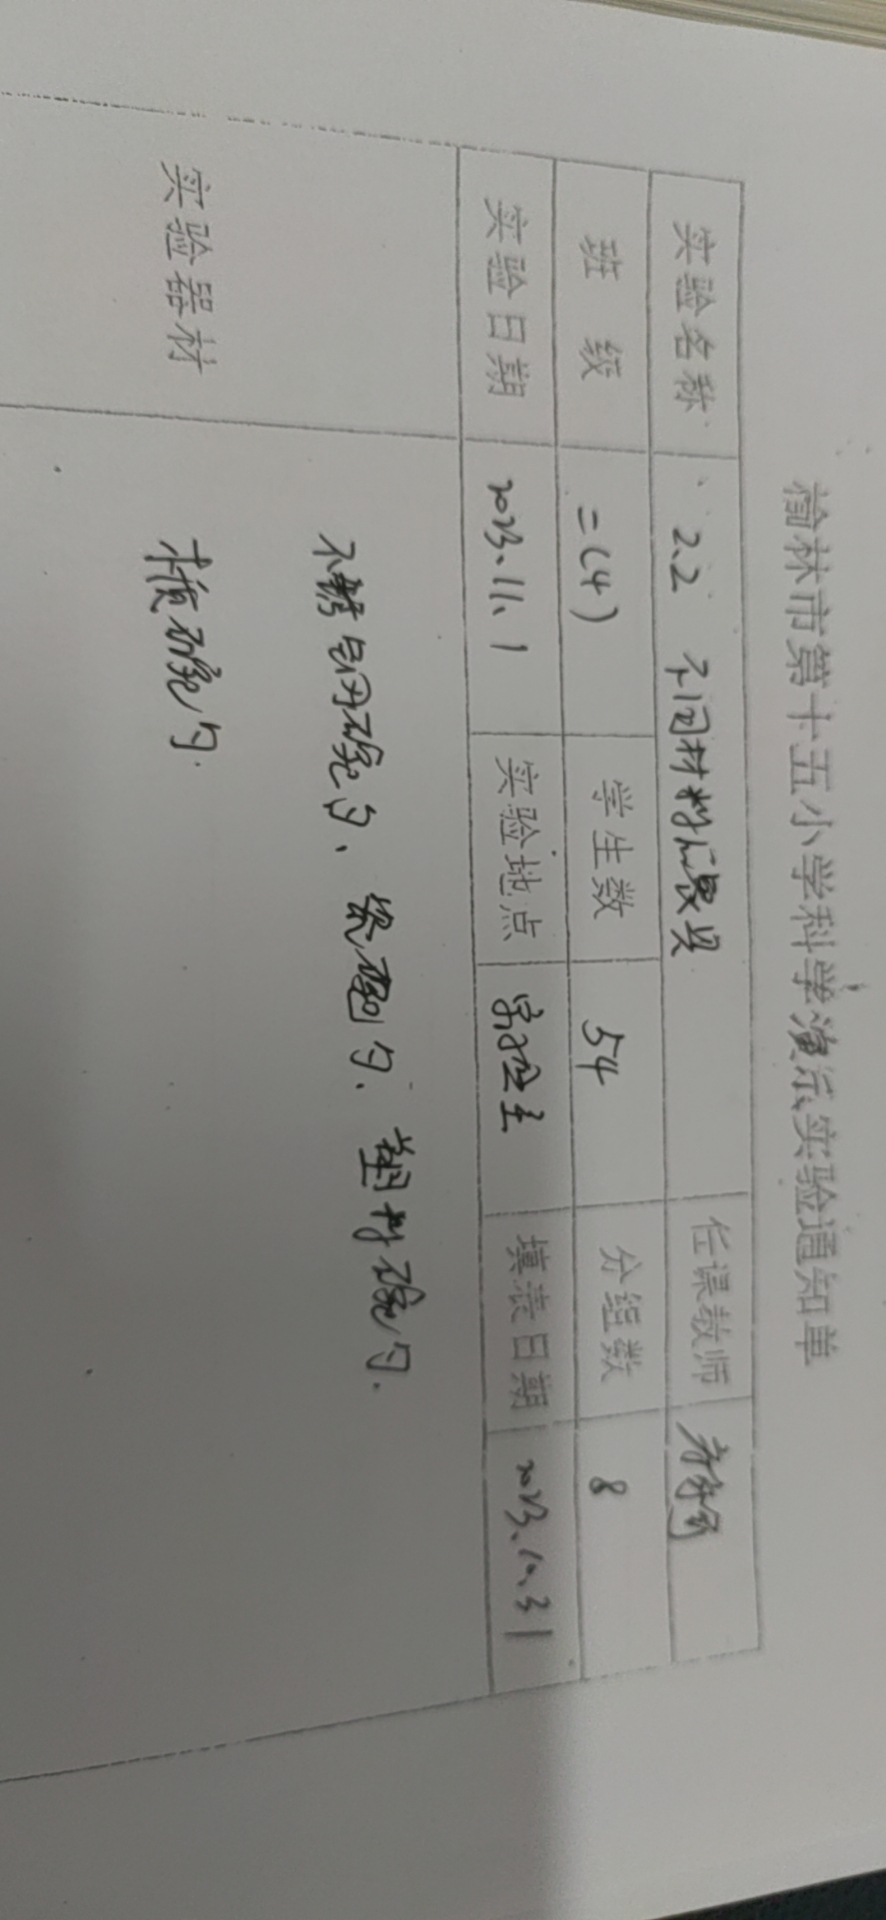 榆林市第十五小学科学演示实验通知单
实验名称 2.2 不同材料的餐具 任课教师
班 级 二(4) 学生数 54 分组数 8
实验日期 2023.11.1 实验地点 实验室 填表日期 2023.10.31
实验器材
不锈钢碗勺、瓷碗勺、塑料碗勺.
木质碗勺.